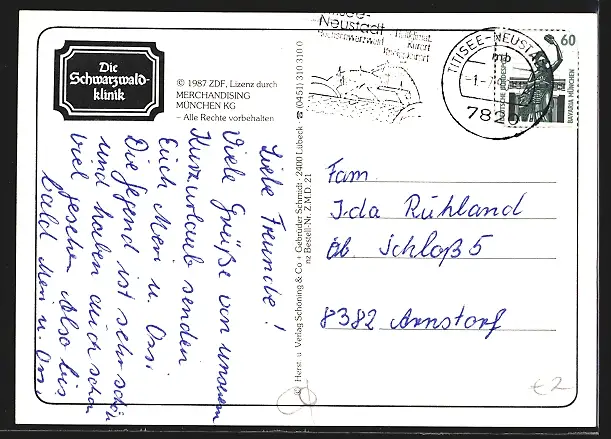 Die
Schwarzwald-
klinik
© 1987 ZDF, Lizenz durch
MERCHANDISING
MÜNCHEN KG
– Alle Rechte vorbehalten
Liebe Freunde!
Viele Grüße von unserem
Kurzurlaub senden
Euch Meri u. Ossi
Die Gegend ist sehr schön
und haben auch schon
viel gesehen. Also bis
bald Meri u. Ossi
Herst. u. Verlag Schöning & Co + Gebrüder Schmidt · 2400 Lübeck · ☎ (0451) 310 310 0
nz Bestell-Nr. Z.M.D. 21
Neustadt
Hochschwarzwald
Heilklimat.
Kurort
Kneippkurort
TITISEE-NEUSTADT
mb
7820
60
DEUTSCHE BUNDESPOST
BAVARIA MÜNCHEN
Fam.
Ida Rühland
Ob. Schloß 5
8382 Arnstorf
€ 2